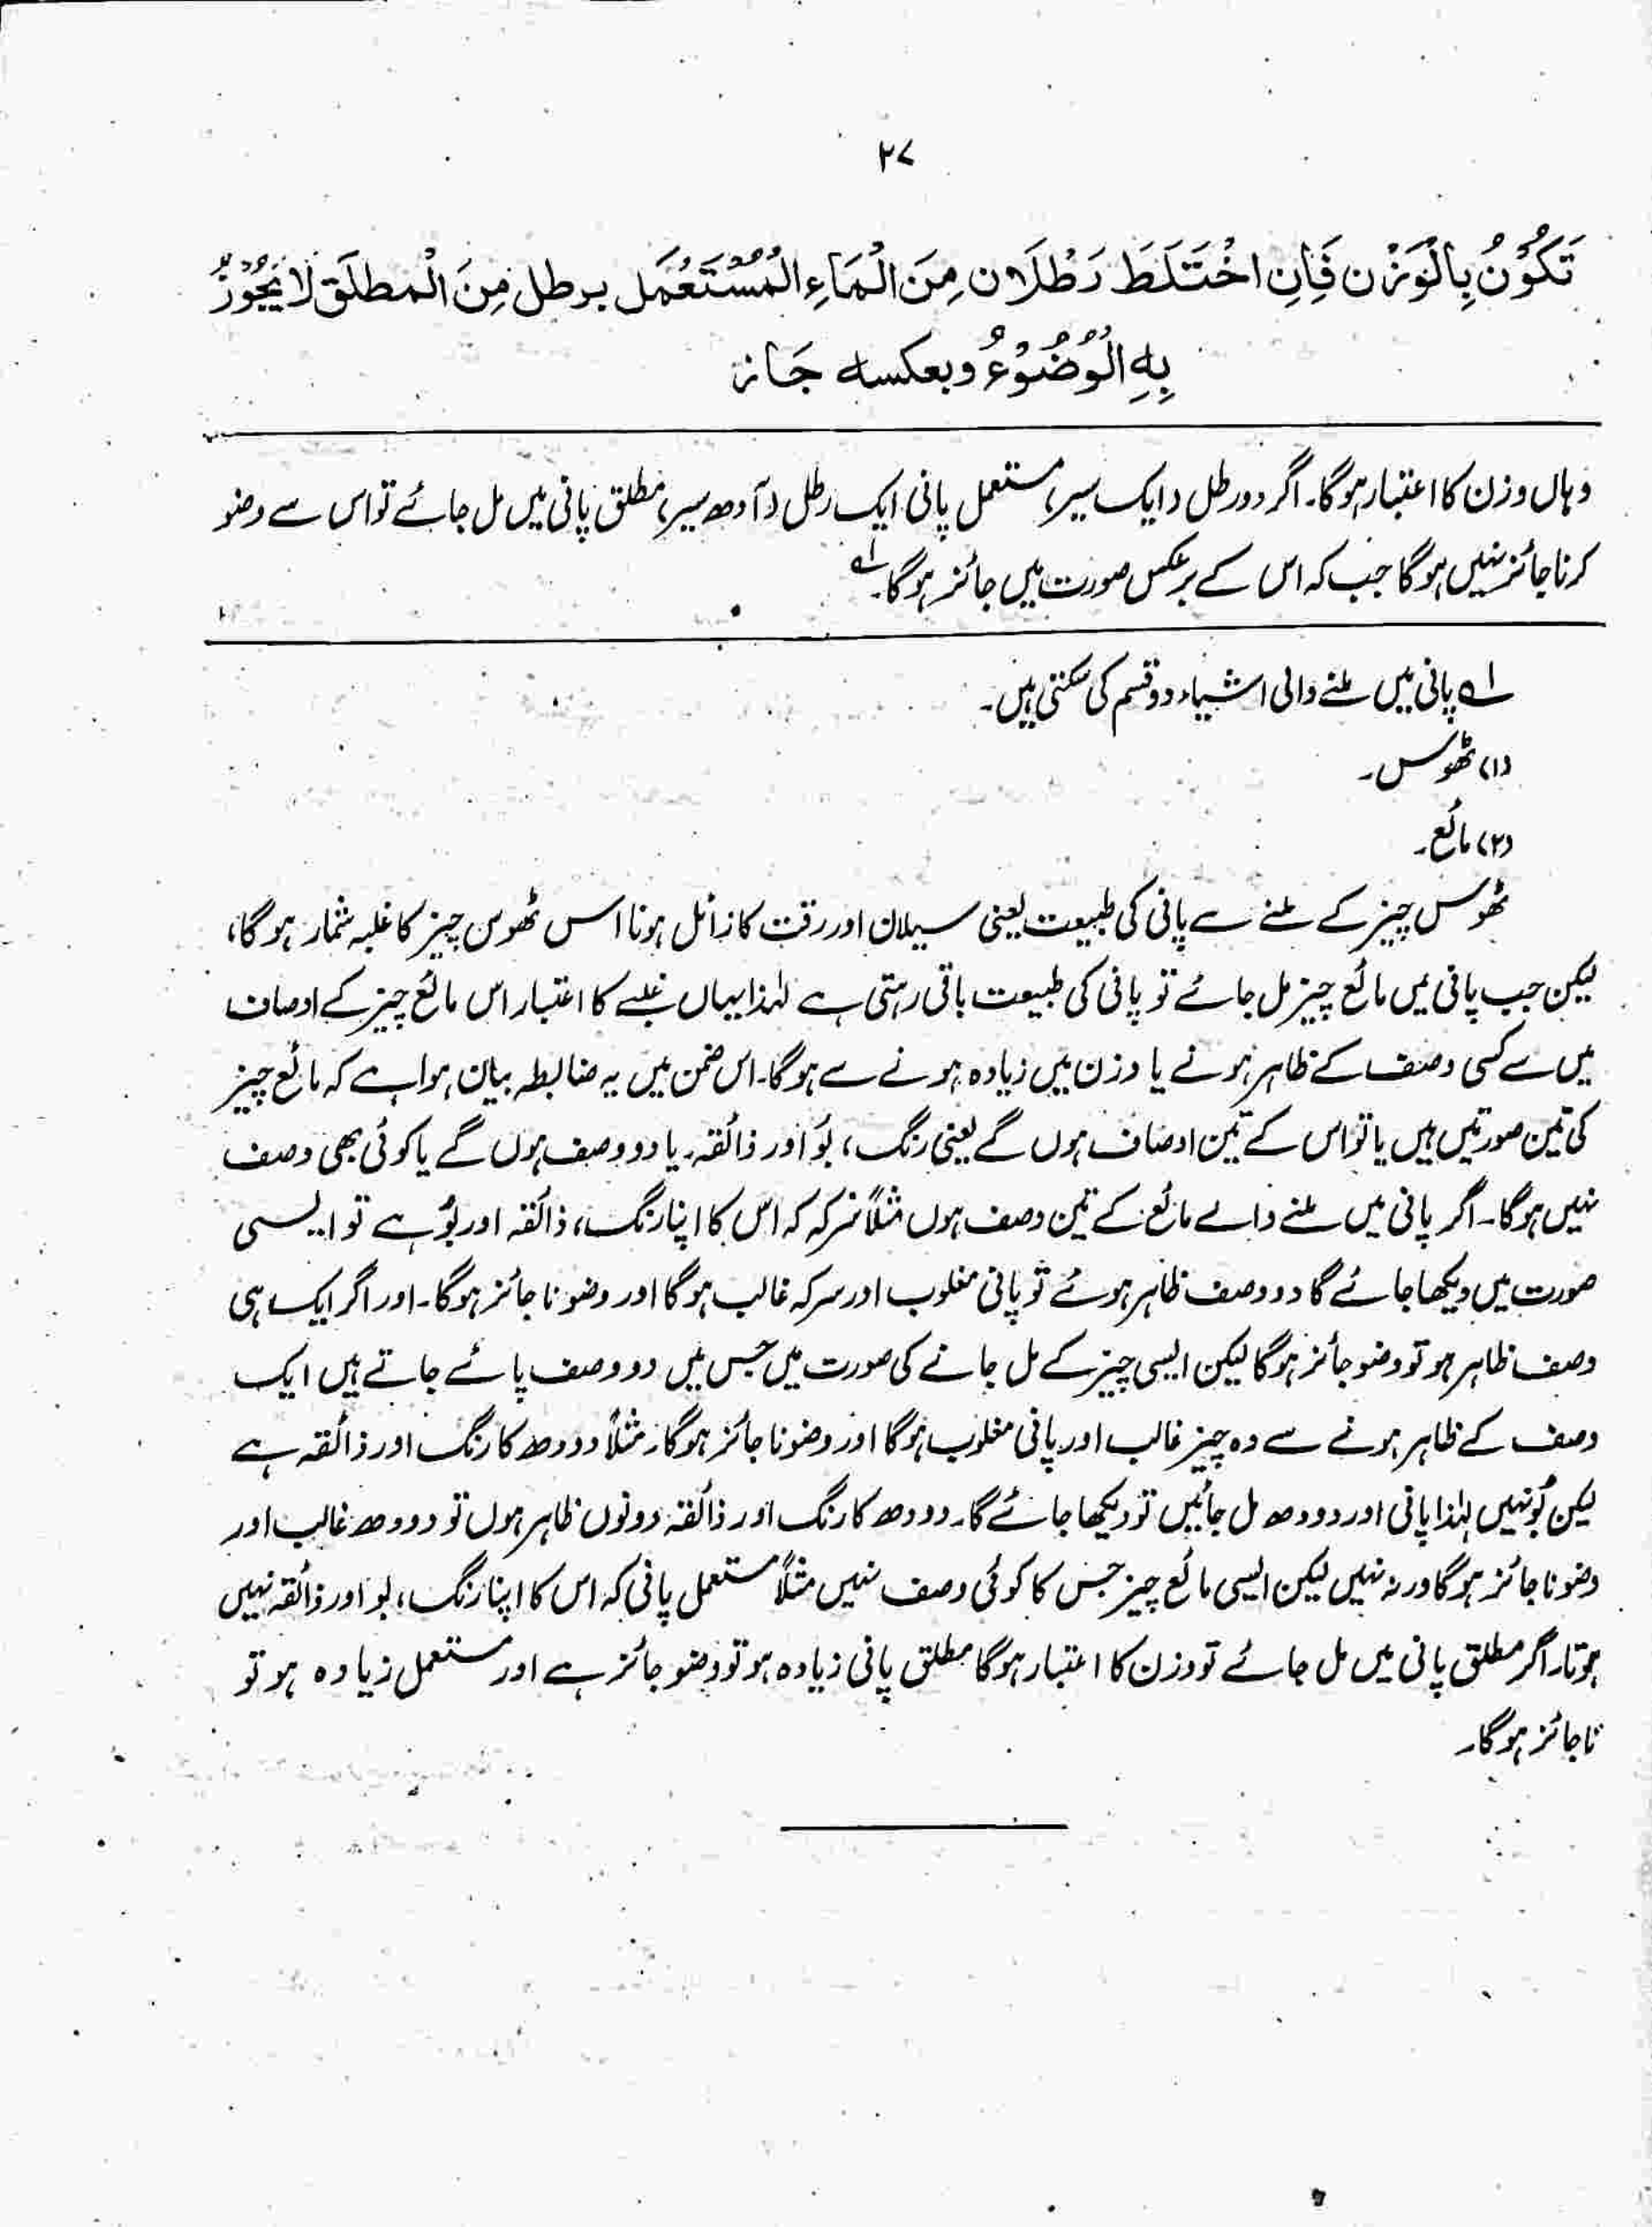 ۲۷
تَكُوْنُ بِالْوَزْنِ فَاِنِ اخْتَلَطَ رَطْلَانِ مِنَ الْمَاءِ الْمُسْتَعْمَلِ برطل مِنَ الْمطلَقِ لَا يَجُوْزُ
بِهِ الْوُضُوْءُ وبعكسه جَازَ
وہاں وزن کا اعتبار ہوگا۔ اگر دو رطل (ایک سیر) مستعمل پانی ایک رطل (آدھ سیر) مطلق پانی میں مل جائے تو اس سے وضو
کرنا جائز نہیں ہوگا جب کہ اس کے برعکس صورت میں جائز ہوگا۔ لہ
لہ پانی میں ملنے والی اشیاء دو قسم کی ہو سکتی ہیں۔
(۱) ٹھوس۔
(۲) مائع۔
ٹھوس چیز کے ملنے سے پانی کی طبیعت یعنی سیلان اور رقت کا زائل ہونا اس ٹھوس چیز کا غلبہ شمار ہوگا،
لیکن جب پانی میں مائع چیز مل جائے تو پانی کی طبیعت باقی رہتی ہے لہٰذا یہاں غلبے کا اعتبار اس مائع چیز کے اوصاف
میں سے کسی وصف کے ظاہر ہونے یا وزن میں زیادہ ہونے سے ہوگا۔ اس ضمن میں یہ ضابطہ بیان ہوا ہے کہ مائع چیز
کی تین صورتیں ہیں یا تو اس کے تین اوصاف ہوں گے یعنی رنگ، بُو اور ذائقہ۔ یا دو وصف ہوں گے یا کوئی بھی وصف
نہیں ہوگا۔ اگر پانی میں ملنے والے مائع کے تین وصف ہوں مثلاً سرکہ کہ اس کا اپنا رنگ، ذائقہ اور بُو ہے تو ایسی
صورت میں دیکھا جائے گا دو وصف ظاہر ہوئے تو پانی مغلوب اور سرکہ غالب ہوگا اور وضو ناجائز ہوگا۔ اور اگر ایک ہی
وصف ظاہر ہو تو وضو جائز ہوگا لیکن ایسی چیز کے مل جانے کی صورت میں جس میں دو وصف پائے جاتے ہیں ایک
وصف کے ظاہر ہونے سے وہ چیز غالب اور پانی مغلوب ہوگا اور وضو ناجائز ہوگا۔ مثلاً دودھ کا رنگ اور ذائقہ ہے
لیکن بُو نہیں لہٰذا پانی اور دودھ مل جائیں تو دیکھا جائے گا۔ دودھ کا رنگ اور ذائقہ دونوں ظاہر ہوں تو دودھ غالب اور
وضو ناجائز ہوگا ورنہ نہیں لیکن ایسی مائع چیز جس کا کوئی وصف نہیں مثلاً مستعمل پانی کہ اس کا اپنا رنگ، بو اور ذائقہ نہیں
ہوتا۔ اگر مطلق پانی میں مل جائے تو وزن کا اعتبار ہوگا مطلق پانی زیادہ ہو تو وضو جائز ہے اور مستعمل زیادہ ہو تو
ناجائز ہوگا۔